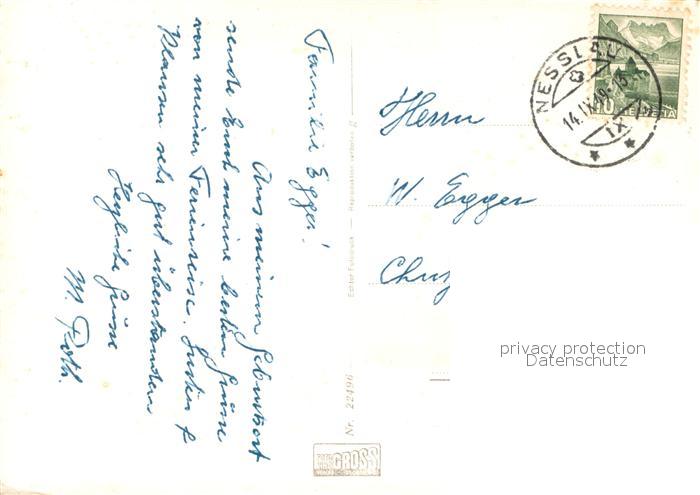 Familie Egger!
Aus meinem Geburtsort
sende Euch meine besten Grüsse
von meiner Ferienreise.
Klausen sehr gut überstanden
Herzliche Grüsse
M. Roth.
Echter Fotodruck — Reproduktion verboten
Nr. 22496
GROSS
NESSLAU
14.IX.
HELVETIA
10
Herrn
W. Egger
Chur
privacy protection
Datenschutz